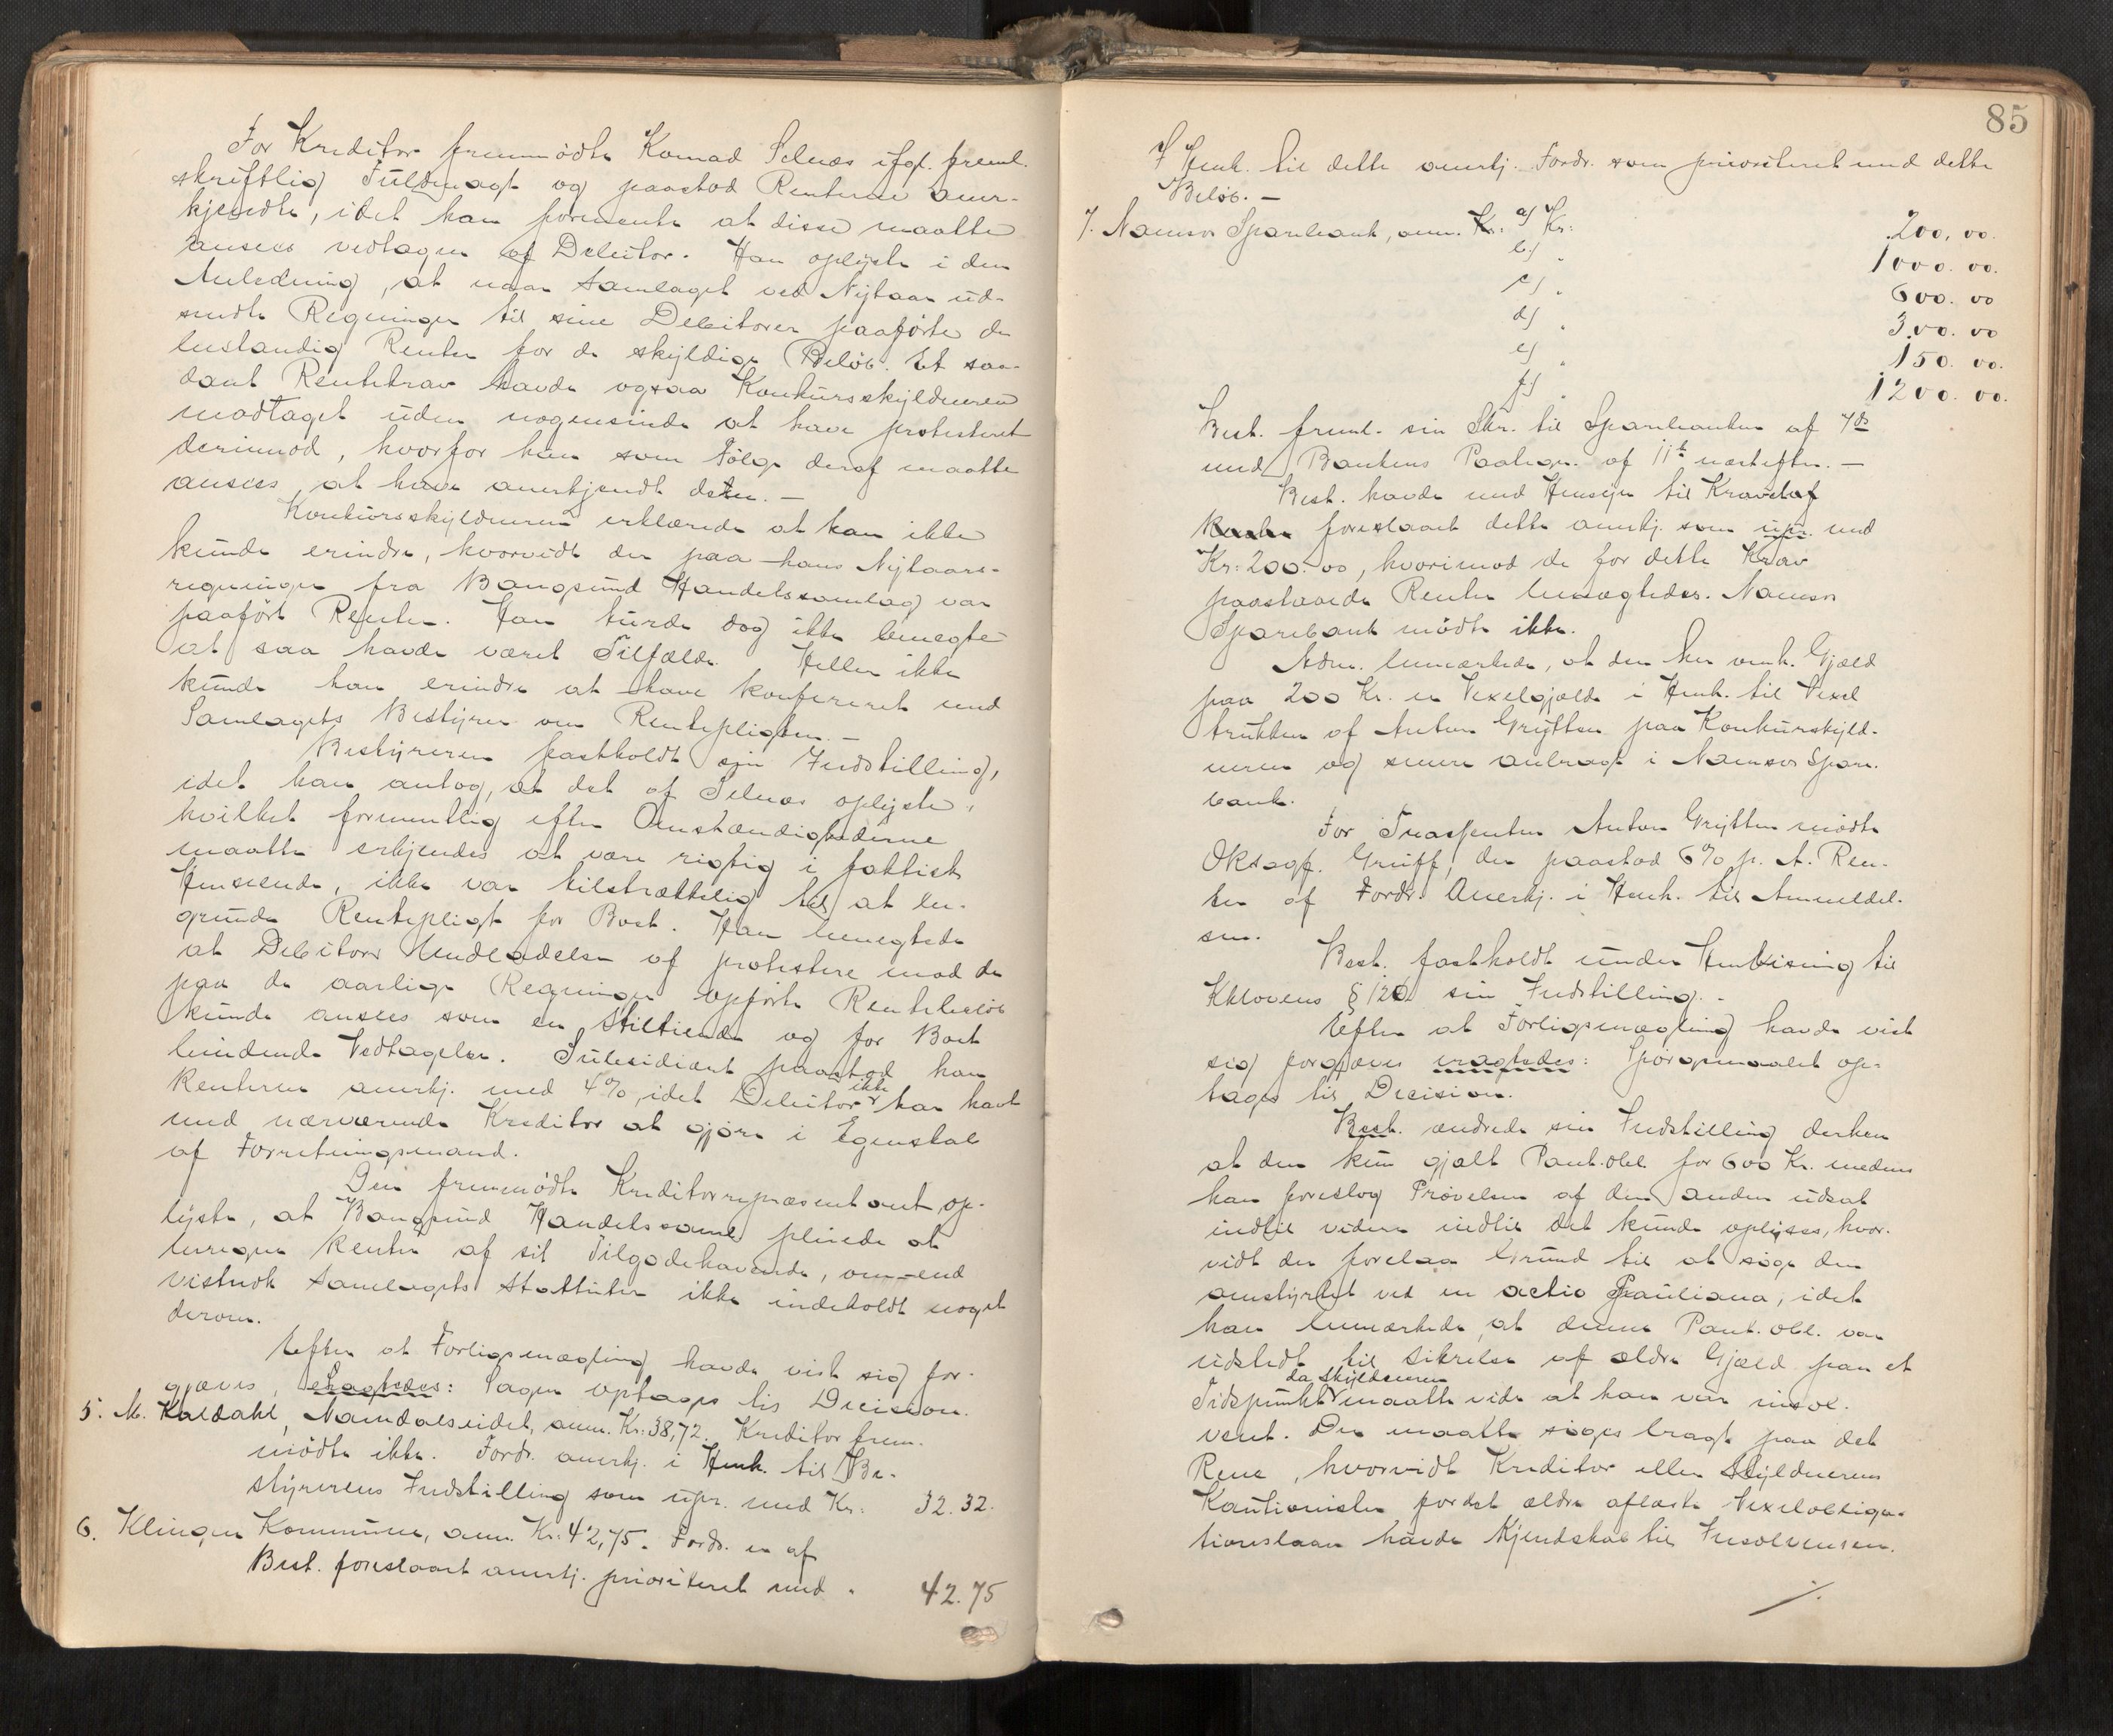 For Kreditor fremmødte Konrad Selnæs ifgl. freml.
skriftlig Fuldmagt og paastod Renterne aner-
kjendte, idet han formente at disse maatte
ansees vedtagen af Debitor. Han oplyste i den
Anledning, at naar Samlaget ved Nytaar ud-
sendte Regninger til sine Debitorer paaførte de
bestandig Renter for de skyldige Beløb. Et saa-
dant Rentekrav havde ogsaa Konkursskyldneren
modtaget uden nogensinde at have protesteret
derimod, hvorfor han som Følge deraf maatte
ansees at have anerkjendt dem. —
Konkursskyldneren erklærede at han ikke
kunde erindre, hvorvidt der paa hans Nytaars-
regninger fra Bangsund Handelssamlag var
paaført Renter. Han turde dog ikke benegte
at saa havde været Tilfælde. Heller ikke
kunde han erindre at have konfereret med
Samlagets Bestyrer om Rentepligten. —
Bestyreren fastholdt sin Indstilling,
idet han antog, at det af Selnæs oplyste,
hvilket formentlig efter Omstændighederne
maatte erkjendes at være rigtig i faktisk
Henseende, ikke var tilstrækkelig til at be-
grunde Rentepligt for Boet. Han benegtede
at Debitors Undladelse af protestere mod de
paa de aarlige Regninger opførte Rentebeløb
kunde ansees som en stiltiende og for Boet
bindende Vedtagelse. Subsidiært paastod han
Renterne anerkj. med 4%, idet Debitor ikke har havt
med nærværende Kreditor at gjøre i Egenskab
af Forretningsmand.
Den fremmødte Kreditorrepræsentant op-
lyste, at Bangsund Handelssaml. pleiede at
beregne Renter af sit Tilgodehavende, om-end
vistnok Samlagets Statuter ikke indeholdt noget
derom.
Efter at Forligsmægling havde vist sig for-
gjæves, eragtedes: Sagen optages til Decision.
5. M. Kaldahl, Namdalseidet, anm. Kr: 38,72. Kreditor frem-
mødte ikke. Fordr. anerkj. i Henh. til Be-
styrerens Indstilling som upr. med Kr: 32.32.
6. Klingen Kommune, anm. Kr: 42,75. Fordr. er af
Best. foreslaaet anerkj. prioriteret med " 42.75
85
I Henh. til dette anerkj. Fordr. som prioriteret med dette
Beløb. —
7. Namsos Sparebank, anm. Kr: a) Kr: 200,00.
b) " 1000.00.
c) " 600.00
d) " 300.00
e) " 150.00.
f) " 1200.00.
Best. freml. sin Skr. til Sparebanken af 7ds
med Bankens Paategn. af 11te næstefter. —
Best. havde med Hensyn til Kravet af
foreslaaet dette anerkj. som upr. med
Kr: 200.00, hvorimod de for dette Krav
paastaaede Renter benægtedes. Namsos
Sparebank mødte ikke.
Adm. bemærkede, at den her omh. Gjæld
paa 200 Kr. er Vexelgjæld i Henh. til Vexel
trukken af Anton Grytten paa Konkursskyld-
neren og senere anbragt i Namsos Spare-
bank.
For Trassenten Anton Grytten mødte
Oksagf. Gruff, der paastod 6% p. A. Ren-
ter af Fordr. Anerkj. i Henh. til Anmeldel-
sen.
Best. fastholdt under Henvisning til
Kklovens § 120 sin Indstilling. -
Efter at Forligsmægling havde vist
sig forgjæves eragtedes: Spørgsmaalet op-
tages til Decision.
Best. ændrede sin Indstilling derhen
at den kun gjalt Pant.obl. for 600 Kr. medens
han foreslog Prøvelsen af den anden udsat
indtil videre indtil det kunde oplyses, hvor-
vidt der forelaa Grund til at søge den
omstyrtet ved en actio Pauliana, idet
han bemærkede, at denne Pant.obl. var
udstedt til Sikrelse af ældre Gjæld paa et
Tidspunkt da Skyldneren maatte vide at han var insol-
vent. Der maatte søges bragt paa det
Rene, hvorvidt Kreditor eller Skyldnerens
Kautionister for det ældre afløste Vexelobliga-
tionslaan havde Kjendskab til Insolvensen.